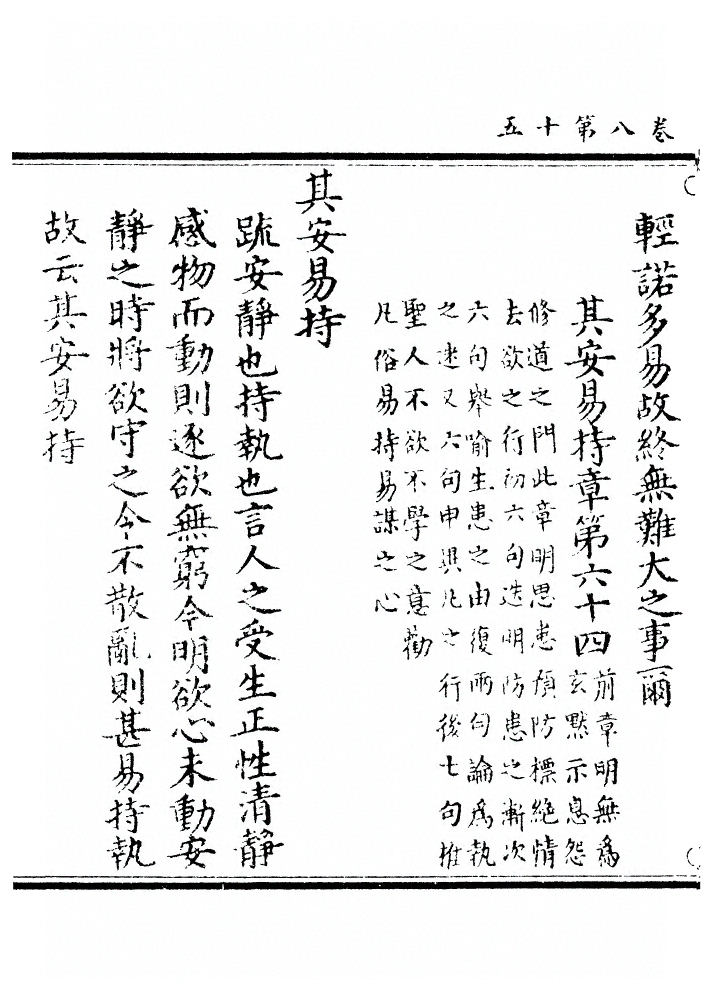 卷八第十五
輕諾多易故終無難大之事爾
其安易持章第六十四
前章明無爲
玄默示息怨
修道之門此章明思患預防標絕情
去欲之行初六句迭明防患之漸次
六句舉喻生患之由復兩句論爲執
之迷又六句申異凡之行後七句推
聖人不欲不學之意勸
凡俗易持易謀之心
其安易持
疏安靜也持執也言人之受生正性清靜
感物而動則逐欲無窮今明欲心未動安
靜之時將欲守之令不散亂則甚易持執
故云其安易持